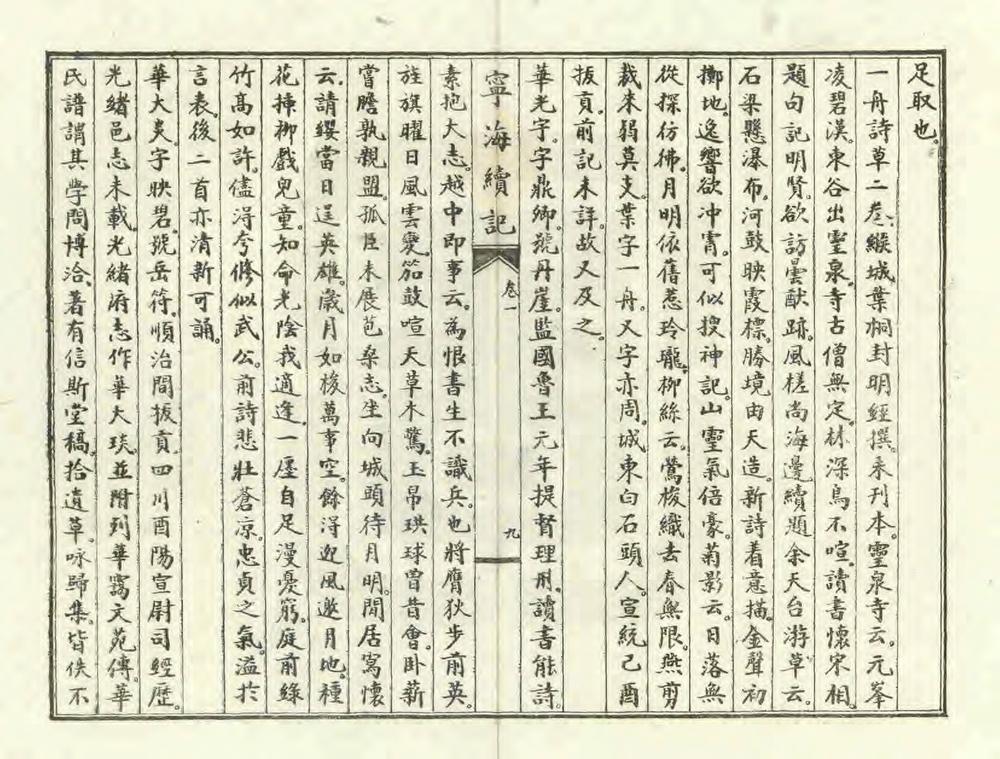 足取也。
一舟詩草二卷、緱城葉桐封明經撰。未刊本。靈泉寺云。元峯
凌碧漢。東谷出靈泉。寺古僧無定。林深鳥不喧。讀書懷宋相。
題句記明賢。欲訪曇猷跡。風槎尚海邊。續題余天台游草云。
石梁懸瀑布。河鼓映霞標。勝境由天造。新詩着意描。金聲初
擲地。逸響欲冲霄。可似搜神記。山靈氣倍豪。菊影云。日落無
從探彷彿。月明依舊惹玲瓏。柳絲云。鶯梭織去春無限。燕剪
裁來弱莫支。葉字一舟。又字亦周。城東白石頭人。宣統己酉
拔貢。前記未詳。故又及之。
華光字。字鼎卿。號丹崖。監國魯王元年提督理刑。讀書能詩。
寧海續記
卷一
九
素抱大志。越中即事云。為恨書生不識兵。也將膺狄步前英。
旌旗曜日風雲變。笳鼓喧天草木驚。玉帛珙球曾昔會。卧薪
嘗膽孰親盟。孤臣未展苞桑志。坐向城頭待月明。閒居寫懷
云。請纓當日逞英雄。歲月如梭萬事空。餘得迎風邀月地。種
花挿柳戲兒童。知命光陰我適逢。一廛自足漫憂窮。庭前綠
竹高如許。儘得夸修似武公。前詩悲壯蒼凉。忠貞之氣。溢於
言表。後二首亦清新可誦。
華大炎。字映碧。號岳符。順治間拔貢。四川酉陽宣尉司經歷。
光緒邑志未載。光緒府志作華大琰。並附列華靄文苑傳。華
氏譜謂其學問博洽。著有信斯堂稿。拾遺草。咏歸集。皆佚不